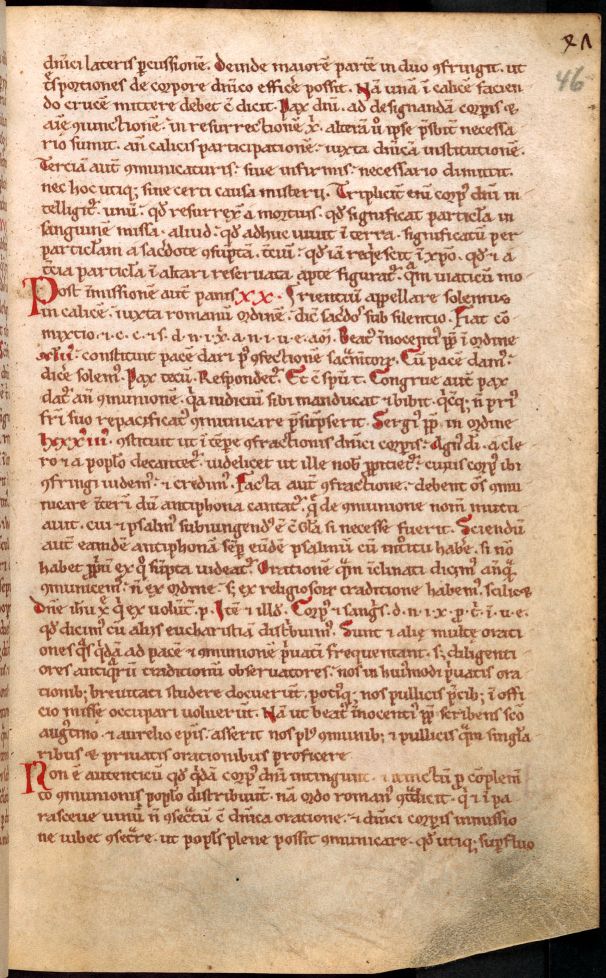 XΛ
46
dn̄ici lateris ꝑcussionē. Deinde maiorē partē in duo ꝯfringit. ut
t͛s portiones de corpore dn̄ico efficẽ possit. Nā unā ī calicē facien
do crucē mittere debet c̄ dicit. Pax dnī. ad designandā corꝑis ⁊
aīe ꝯiunctionē. in resurrectionē x̄. alterā ů ipse p̄sbit̄ necessa
rio sumit. an̄ calicis participationē. iuxta dn̄icā institutionē.
Terciā aut̄ ꝯmunicaturis. siue infirmis. necessario dimittit.
nec hoc utiq; sine certi causa misterii. Triplicit̄ eni corp᷒ dnī in
telligit᷑. unū. qd̄ resurrex̄ a mortuis. qd̄ significat particła in
sanguinē missa. aliud. qd̄ adhuc uiuit ī terra. significatū per
particłam a sac̄dote ꝯsūptā. t̄ciū. qd̄ iā req̇escit ī xp̄o. qd̄ ⁊ a
t̄cia particła ī altari reseruata apte figurat᷑. q̄m uiaticū mo
Post īmissionē aut̄ panis XX. rientiū appellare solemus
in calicē. iuxta romanū ordinē. dic̄ sac̄do᷒ sub silentio. Fiat cō
mixtio. ⁊. c. ⁊. s. d. n. ix̄. a. n. i. u. e. am̄. Beat᷒ innocenti᷒ pp̄ ī ordine
xlii. constituit pacē dari p᷒ ꝯfectionē sac̄mtoꝝ. Cū pacē dam᷒.
dic̄e solem᷒. Pax tecū. Respondet᷑. Et c̄ spū t̄. Congrue aut̄ pax
dat᷑ an̄ ꝯmunionē. q̇a iudiciū sibi manducat ⁊ bibit. q̇cq; n̄ pri᷒
fr̄i suo repacificat᷒ ꝯmunicare p̄sūpserit. Sergi᷒ pp̄. in ordine
lxxxvii. ꝯstituit ut ī tēpe ꝯfractionis dn̄ici corꝑis. Agn᷒ di. a cle
ro ⁊ a poplo decantet᷑. uidelicet ut ille nob̄ ꝓpiciet᷑. cuius corp᷒ ibi
ꝯfringi uidem᷒. ⁊ credim᷒. Facta aut̄ ꝯfractione. debent om̄s ꝯmu
nicare īterī dū antiphona cantat᷑. q̄ de ꝯmunione nom̄ mutu
auit. cui ⁊ psalm᷒ subiungend᷒ ē c̄ głā si necesse fuerit. Sciendū
aut̄ eamdē antiphonā semp̄ eūdē psalmū cū intītu habē. si nō
habet ꝓpriū ex q̊ sūpta uideat᷑. Orationē q̄m īclinati dicim᷒ anq̄
ꝯmunicem᷒. n̄ ex ordine. s; ex religiosoꝝ traditione habem᷒. scilic⁊
Dnē ihū x̄ q̇ ex uolūt̄. p. Itē ⁊ illd̄. Corp᷒ ⁊ sangs̄. d. n. i. x̄. p. c̄. ī. u. e.
qd̄ dicim᷒ cū aliis eucharistiā distbuim᷒. Sunt ⁊ alie multe orati
ones q̄s q̇dā ad pacē ⁊ ꝯmunionē ṗuatī frequentant. s; diligenti
ores antiq̇rū traditionū obseruatores. nos in hui᷒modi ṗuatis ora
tionib; breuitati studere docuer̄t. poti᷒q; nos puplicis p̄cib; ī offi
cio misse occupari uoluer̄t. Nā ut beat᷒ innocenti᷒ pp̄ scribens sc̄o
aug᷒tino. ⁊ aurelio ep̄is. asserit nos pl᷒ ꝯmunib; ⁊ puplicis q̄m singła
ribus ⁊ priuatis orationibus proficere
Non ē autenticū qd̄ q̇dā corp᷒ dnī intingunt. ⁊ intinctū ꝓ cōplem̄
to ꝯmunionis poplo distribuunt. nā ordo roman᷒ ꝯt̄dicit. q̇ ⁊ ī pa
rasceue uinū n̄ ꝯsec̄tū c̄ dn̄ica oratione. ⁊ dn̄ici corꝑis inmissio
ne iubet ꝯsec̄re. ut popl᷒s plene possit ꝯmunicare. qd̄ utiq; suꝑfluo